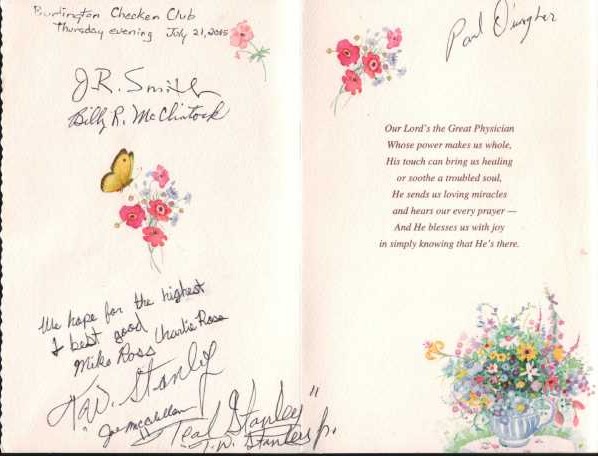 Burlington Checker Club
Thursday evening July 21, 2015
J.R. Smith
Billy R. McClintock
We hope for the highest
& best good
Mike Ross Charlie Rose
T.W. Stanley
Joe McClellan
"Teal Stanley"
T.W. Stanley Jr.
Paul
Our Lord's the Great Physician
Whose power makes us whole,
His touch can bring us healing
or soothe a troubled soul,
He sends us loving miracles
and hears our every prayer —
And He blesses us with joy
in simply knowing that He's there.